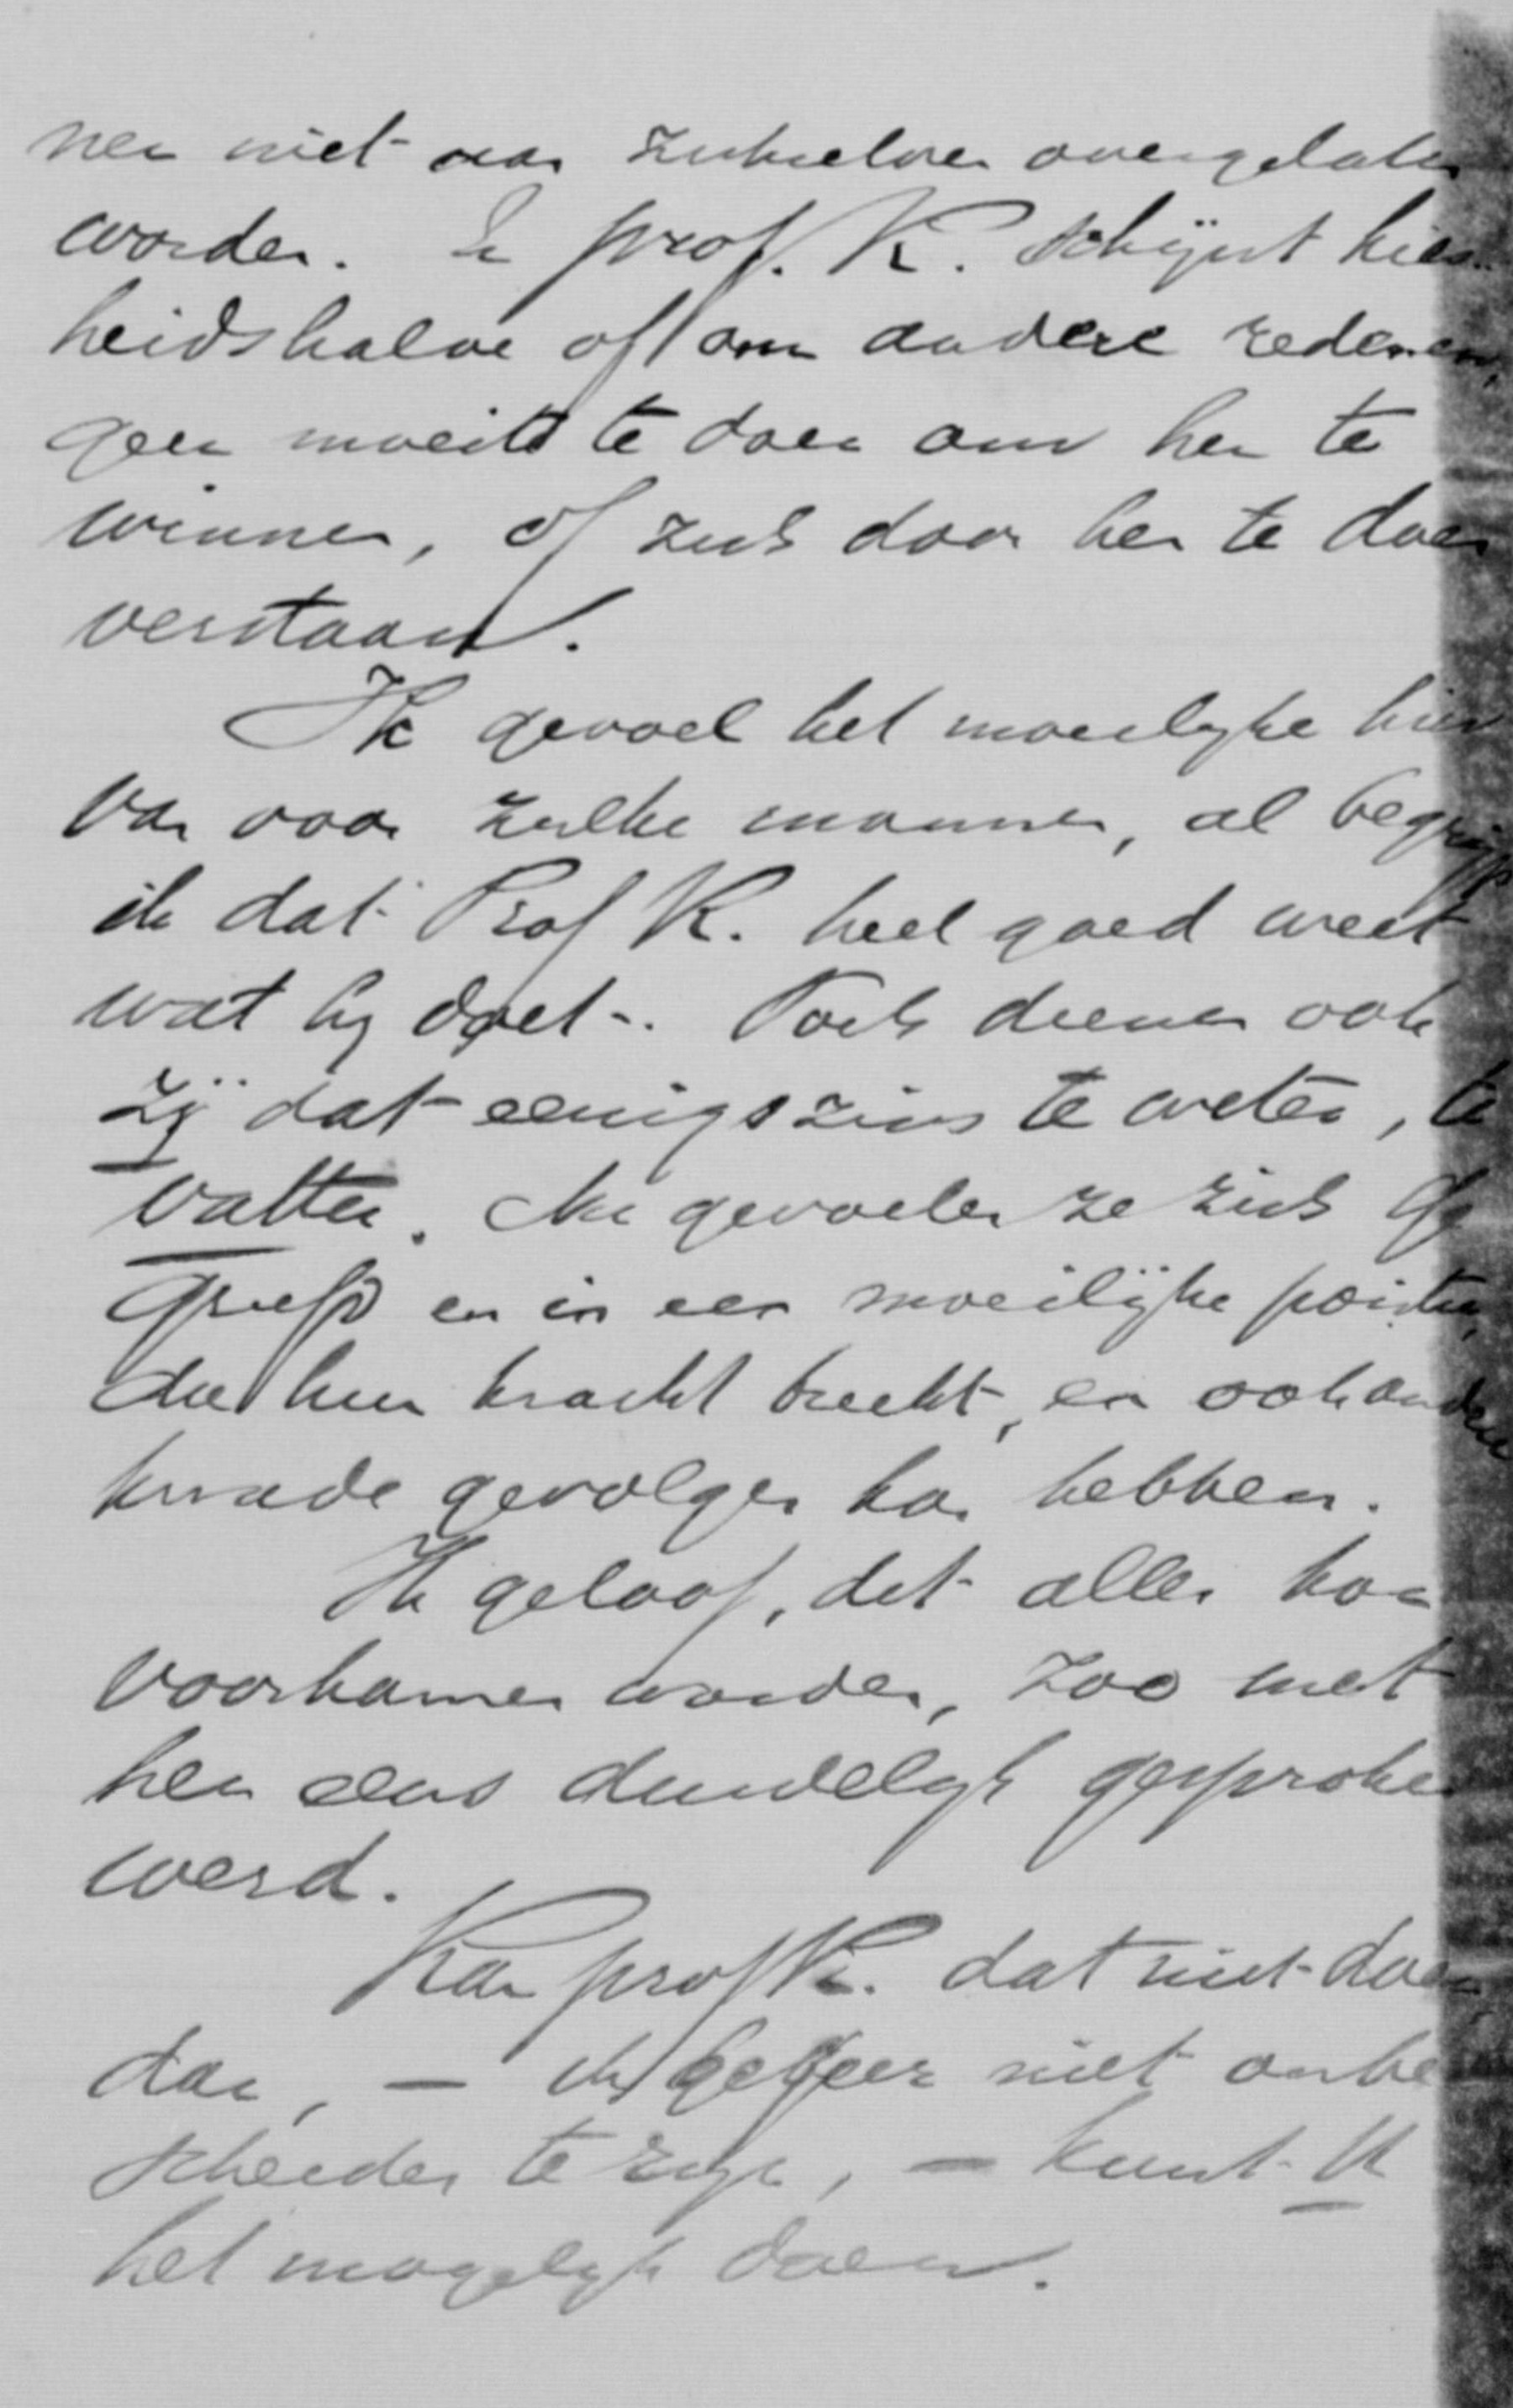 nen niet aan zichzelven overgelaten
worden. En prof. K. schijnt kies-
heidshalve of om andere redenen,
geen moeite te doen om hen te
winnen, of zich door hen te doen
verstaan.
Ik gevoel het moeilyke hier
van voor zulke mannen, al begrijp
ik dat Prof K. heel goed weet
wat hy doet. Toch dienen ook
zij dat eenigszins te weten, te
vatten. Nu gevoelen ze zich ge
griefd en in een moeilijke positie,
die hun kracht breekt, en ook andere
kwade gevolgen kan hebben.
Ik geloof, dat alles kan
voorkomen worden, zoo met
hen eens duidelyk gesproken
werd.
Kan prof K. dat niet doen
dan, — ik begeer niet onbe
scheiden te zyn, — kunt U
het mogelyk doen.